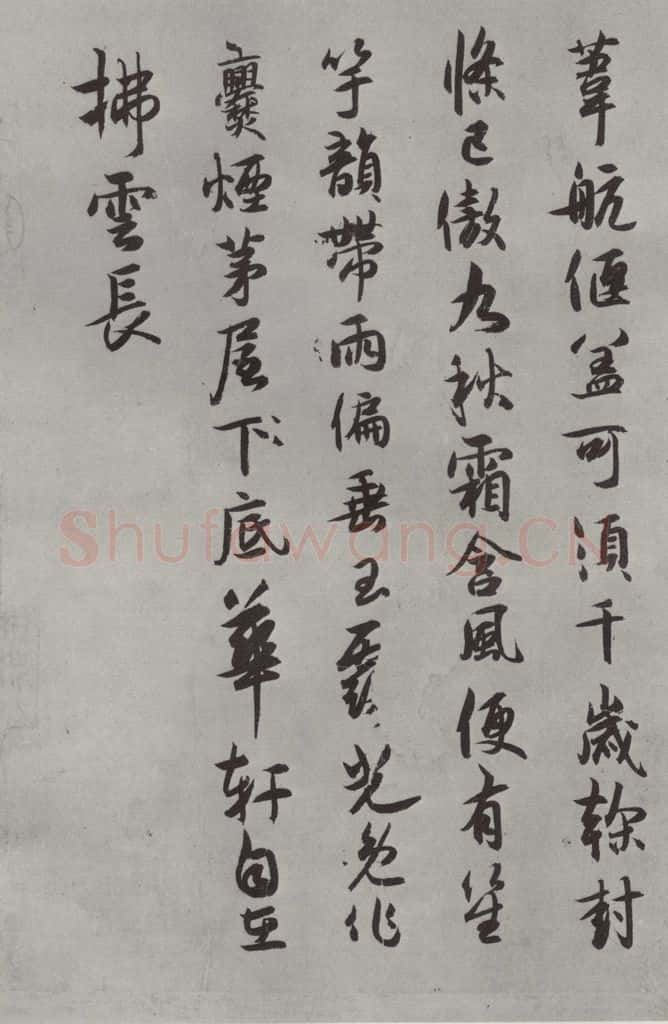 葦航偃盖可須千歲榦封
條已傲九秋霜含風便有笙
竽韻帶雨偏垂玉露光免作
爨煙茅屋下底華軒自在
拂雲長
Shufawang.CN